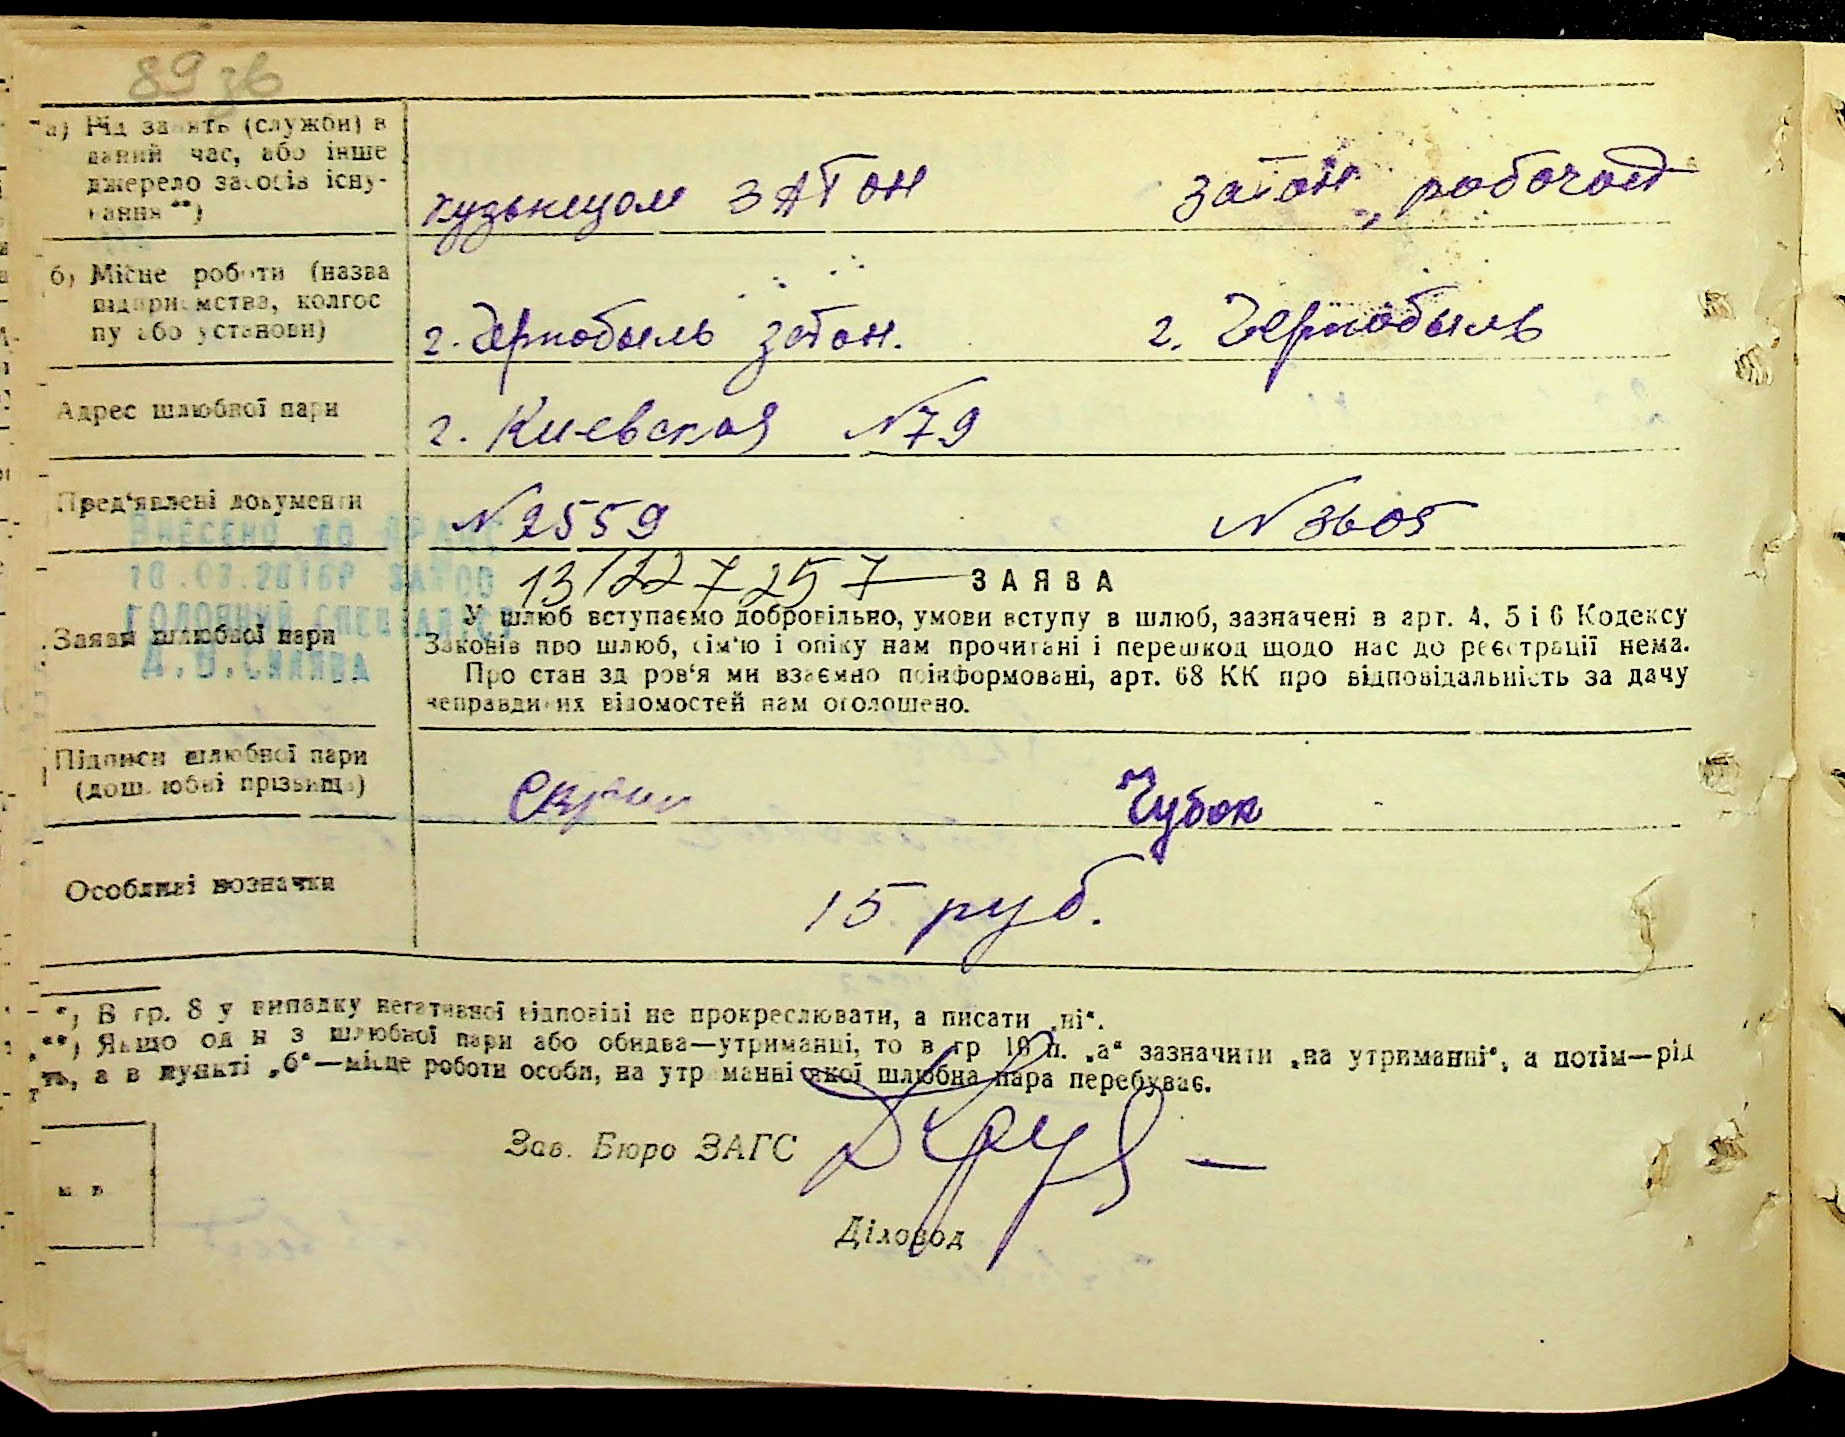 89 зв
а) Рід занять (служби) в
даний час, або інше
джерело засобів існу-
вання **)
кузьнецом ЗАТОН
затон, робочой
б) Місце роботи (назва
підприємства, колгос
пу або установи)
г. Чернобыль затон.
г. Чернобыль
Адрес шлюбної пари
г. Киевская №79
Пред'явлені документи
№2559
№3605
ВНЕСЕНО ДО ДРАЦС
10.03.2016Р
ГОЛОВНИЙ СПЕЦІАЛІСТ
13/22 7257
Заяви шлюбної пари
ЗАЯВА
У шлюб вступаємо добровільно, умови вступу в шлюб, зазначені в арт. 4, 5 і 6 Кодексу
Законів про шлюб, сім'ю і опіку нам прочитані і перешкод щодо нас до реєстрації нема.
Про стан здоров'я ми взаємно поінформовані, арт. 68 КК про відповідальність за дачу
неправдивих відомостей нам оголошено.
Підписи шлюбної пари
(дошлюбні прізвища)
Чубок
Особливі возначки
15 руб.
*) В гр. 8 у випадку негативної відповіді не прокреслювати, а писати „ні“.
**) Якщо один з шлюбної пари або обидва—утриманці, то в гр 10 п. „а“ зазначити „на утриманні“, а потім—рід
ть, а в пункті „б“—місце роботи особи, на утриманні якої шлюбна пара перебуває.
Зав. Бюро ЗАГС
Діловод